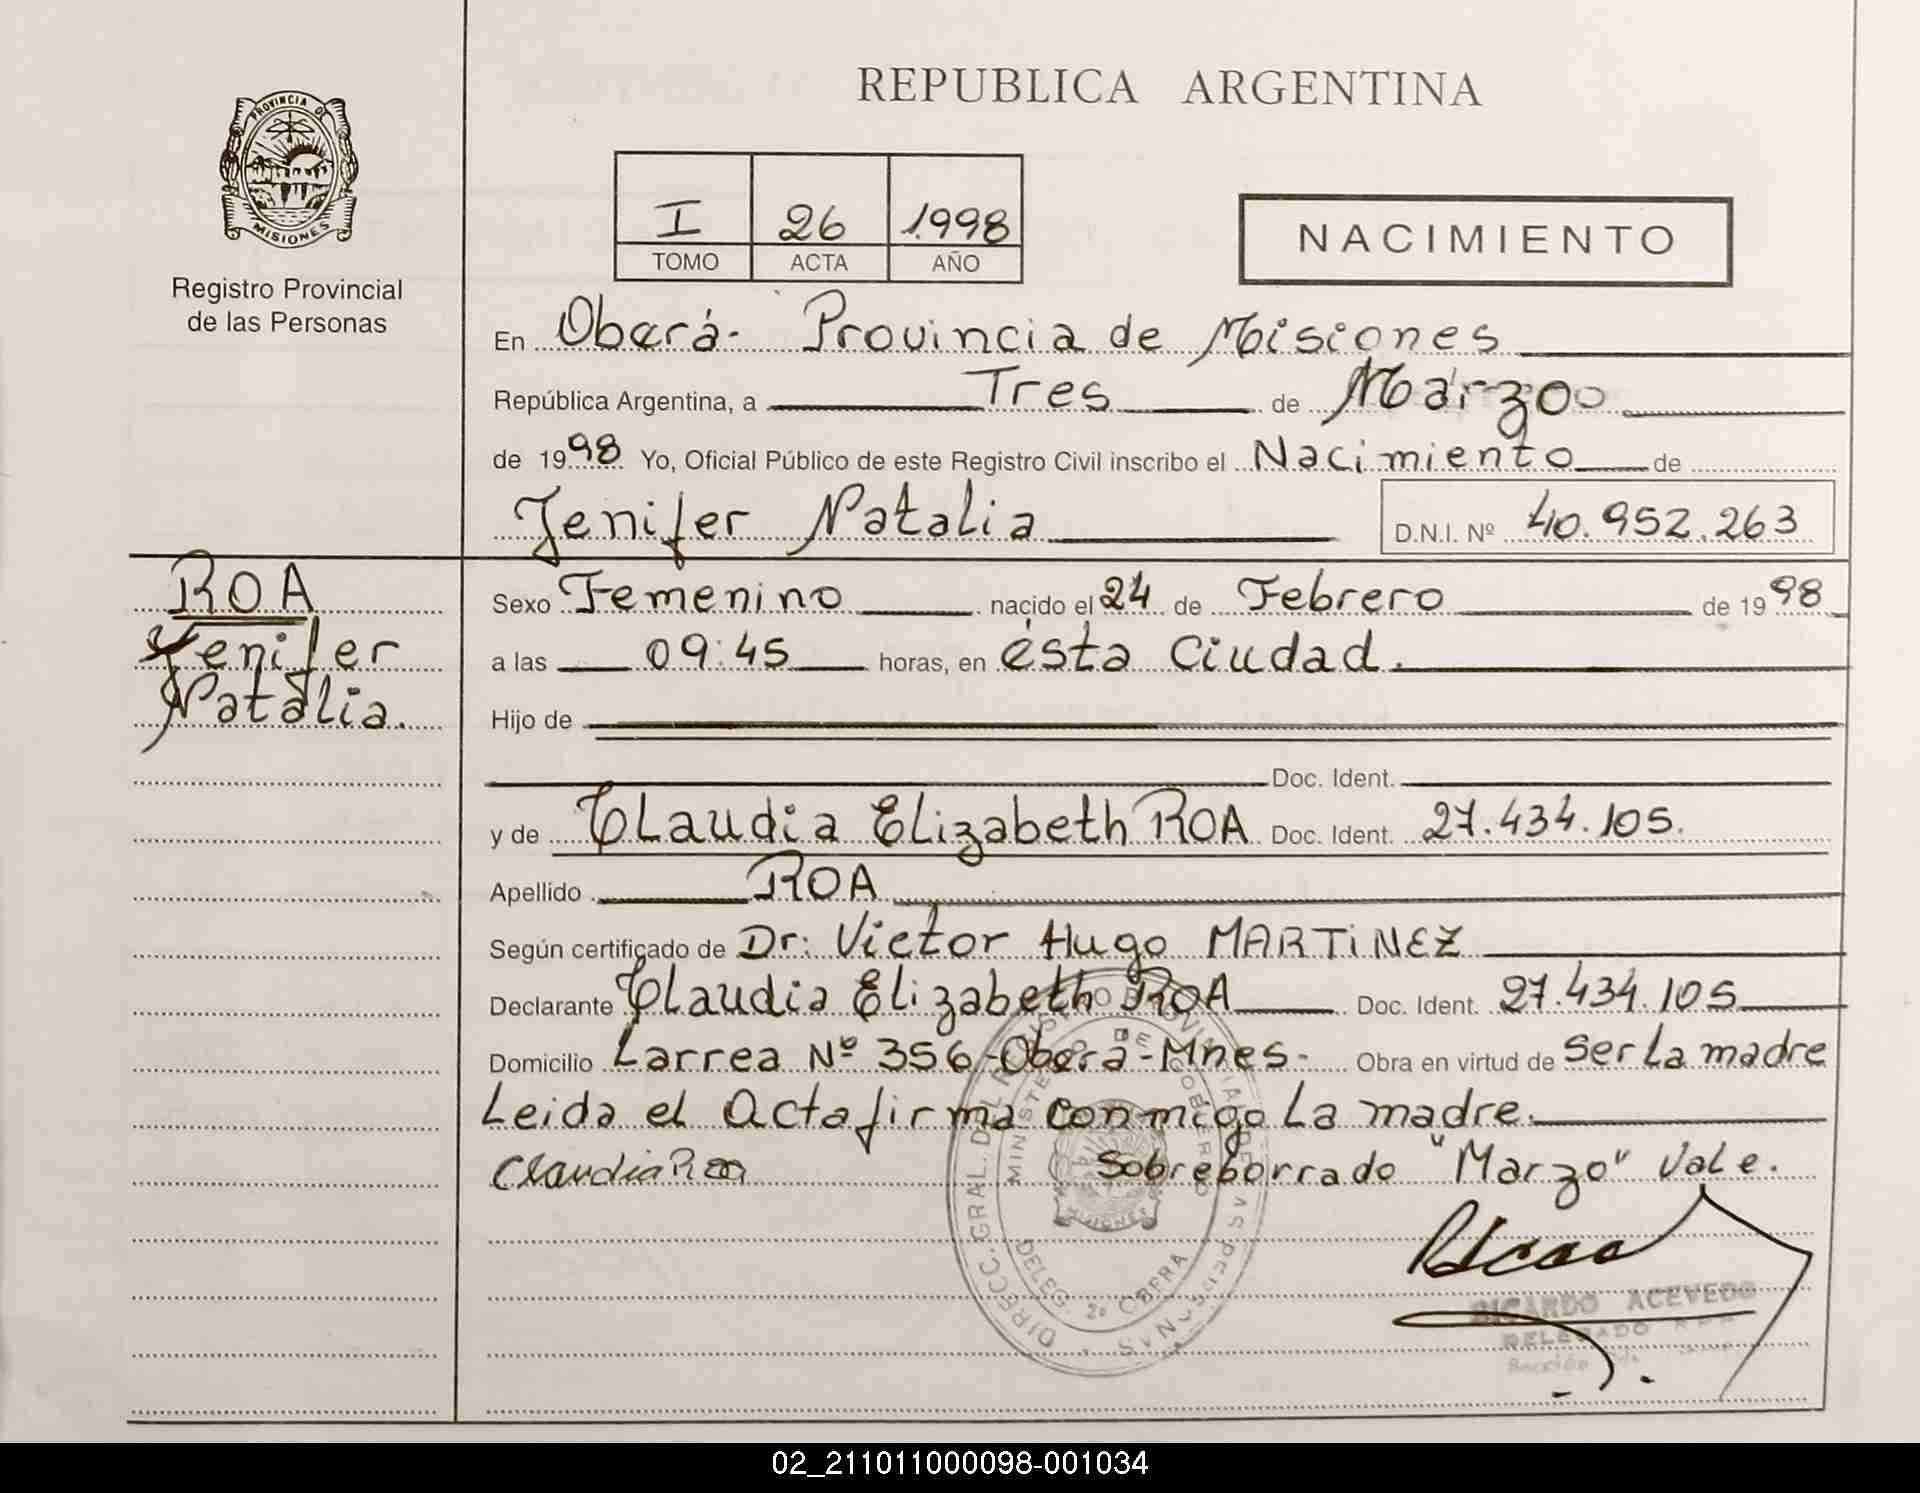 REPUBLICA ARGENTINA
PROVINCIA DE
MISIONES
Registro Provincial
de las Personas
I 26 1998
TOMO ACTA AÑO
NACIMIENTO
En Oberá- Provincia de Misiones
República Argentina, a Tres de Marzo
de 1998 Yo, Oficial Público de este Registro Civil inscribo el Nacimiento de
Jenifer Natalia D.N.I. Nº 40.952.263
ROA
Jenifer
Natalia.
Sexo Femenino nacido el 24 de Febrero de 1998
a las 09:45 horas, en ésta Ciudad.
Hijo de
Doc. Ident.
y de Claudia Elizabeth ROA Doc. Ident. 27.434.105.
Apellido ROA
Según certificado de Dr: Victor Hugo MARTINEZ
Declarante Claudia Elizabeth ROA Doc. Ident. 27.434.105
Domicilio Larrea Nº 356-Oberá-Mnes- Obra en virtud de ser La madre
Leida el Acta firma conmigo La madre.
Claudia Roa Sobreborrado "Marzo" Vale.
DIRECC. GRAL. DEL REGISTRO PROVINCIAL DE LAS PERSONAS
MINISTERIO DE GOBIERNO
MISIONES
DELEG. 2º OBERA
RICARDO ACEVEDO
DELEGADO
02_211011000098-001034